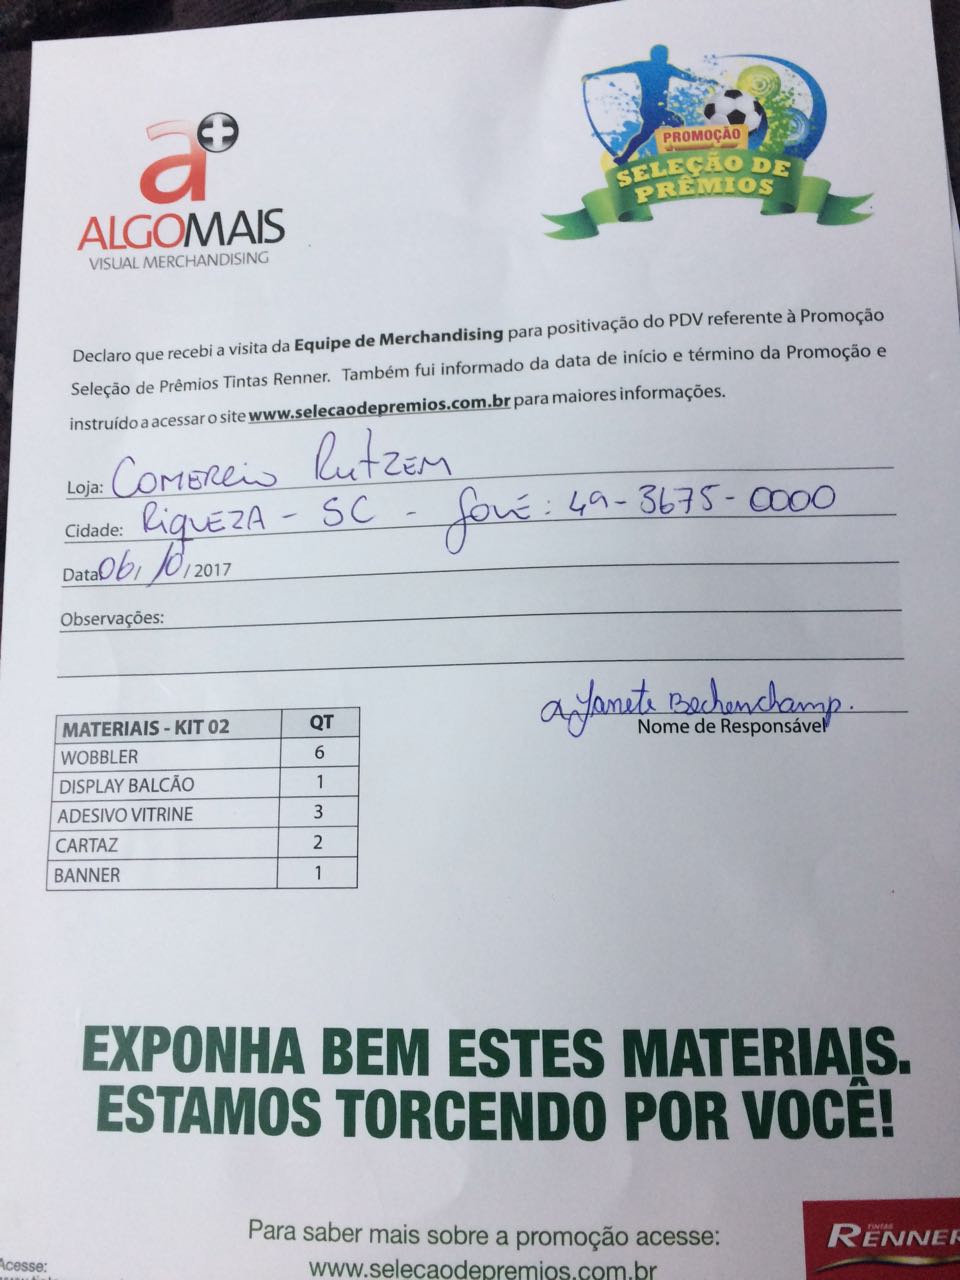 a+
ALGOMAIS
VISUAL MERCHANDISING
PROMOÇÃO
SELEÇÃO DE
PRÊMIOS
Declaro que recebi a visita da Equipe de Merchandising para positivação do PDV referente à Promoção
Seleção de Prêmios Tintas Renner. Também fui informado da data de início e término da Promoção e
instruído a acessar o site www.selecaodepremios.com.br para maiores informações.
Loja: Comercio Rutzem
Cidade: Riqueza - SC - fone: 49-3675-0000
Data: 06/10/2017
Observações:
Janete Bechenchamp.
Nome de Responsável
MATERIAIS - KIT 02 QT
WOBBLER 6
DISPLAY BALCÃO 1
ADESIVO VITRINE 3
CARTAZ 2
BANNER 1
EXPONHA BEM ESTES MATERIAIS.
ESTAMOS TORCENDO POR VOCÊ!
Para saber mais sobre a promoção acesse:
www.selecaodepremios.com.br
Acesse:
TINTAS
RENNER